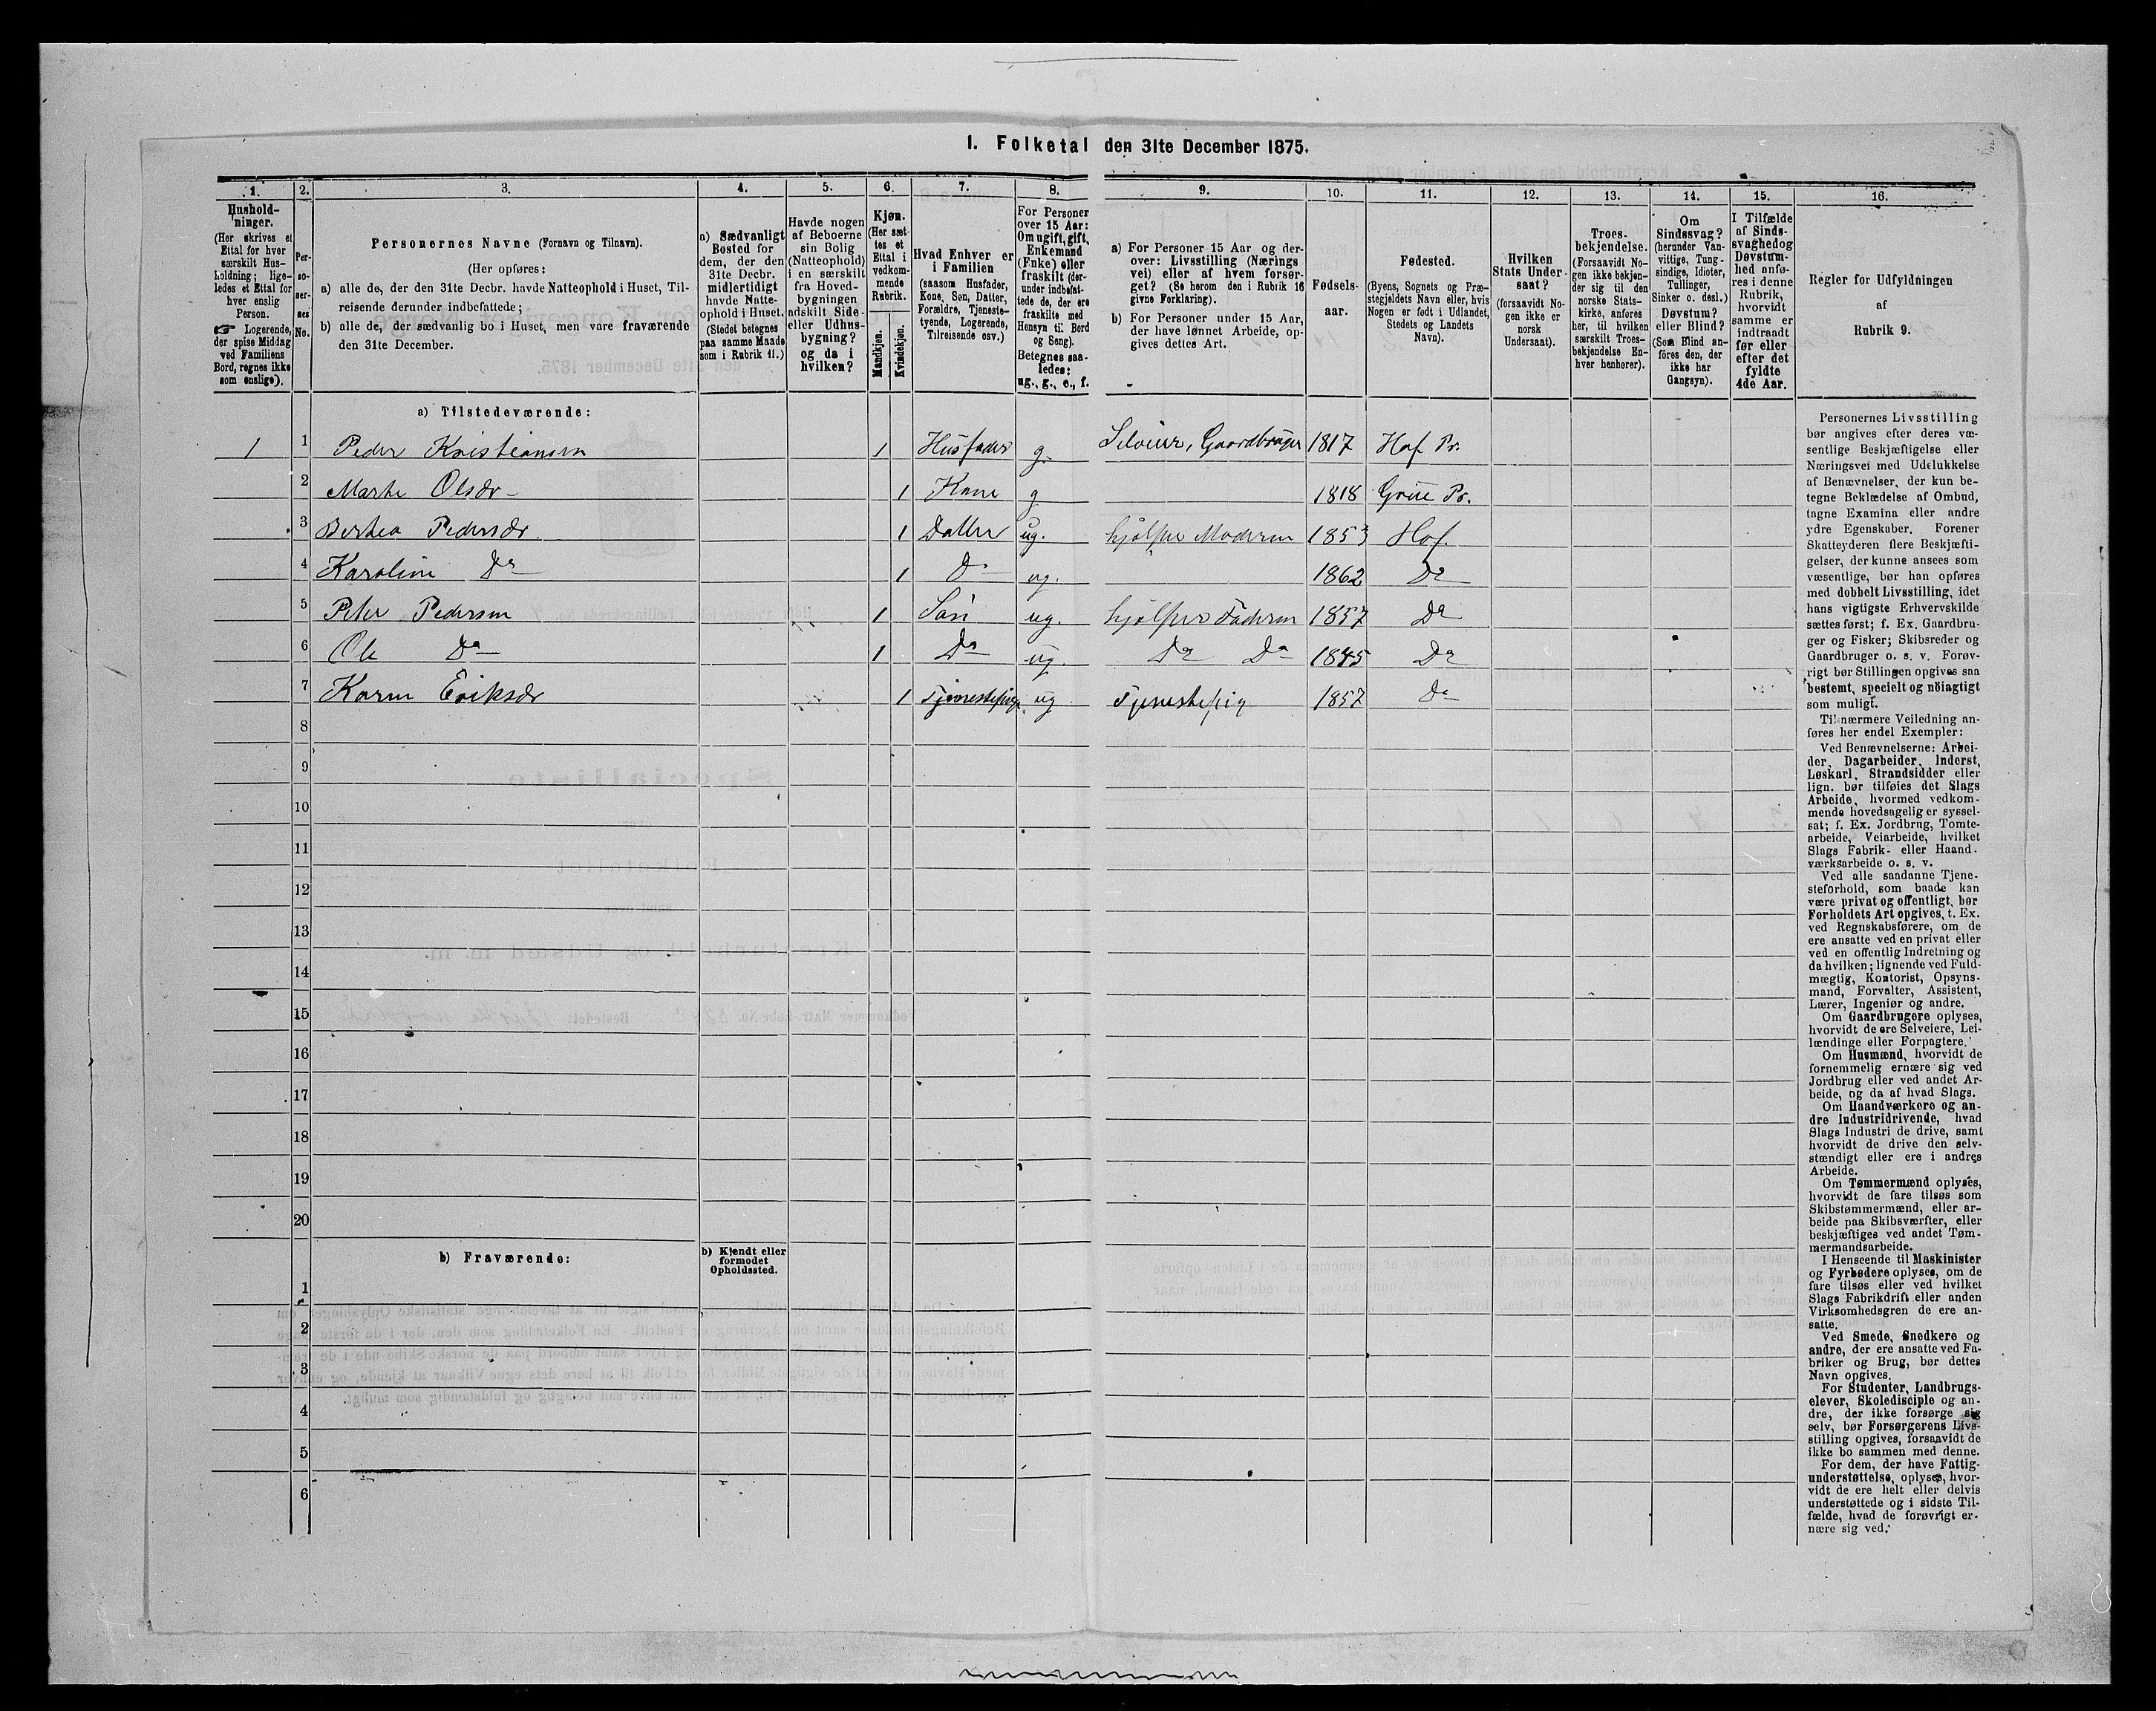 I. Folketal den 31te December 1875.
1. 2. 3. 4. 5. 6. 7. 8. 9. 10. 11. 12. 13. 14. 15. 16.
Hushold-
ninger.
(Her skrives et
Ettal for hver
særskilt Hus-
holdning; lige-
ledes et Ettal for
hver enslig
Person.
☞ Logerende,
der spise Middag
ved Familiens
Bord, regnes ikke
som enslige).
Per-
so-
ner-
nes
No.
Personernes Navne (Fornavn og Tilnavn).
(Her opføres:
a) alle de, der den 31te Decbr. havde Natteophold i Huset, Til-
reisende derunder indbefattede;
b) alle de, der sædvanlig bo i Huset, men vare fraværende
den 31te December.
a) Sædvanligt
Bosted for
dem, der den
31te Decbr.
midlertidigt
havde Natte-
ophold i Huset.
(Stedet betegnes
paa samme Maade
som i Rubrik 11.)
Havde nogen
af Beboerne
sin Bolig
(Natteophold)
i en særskilt
fra Hoved-
bygningen
adskilt Side-
eller Udhus-
bygning?
og da i
hvilken?
Kjøn.
(Her sæt-
tes et
Ettal i
vedkom-
mende
Rubrik.
Mandkjøn.
Kvindekjøn.
Hvad Enhver er
i Familien
(saasom Husfader,
Kone, Søn, Datter,
Forældre, Tjeneste-
tyende, Logerende,
Tilreisende osv.)
For Personer
over 15 Aar:
Om ugift, gift,
Enkemand
(Enke) eller
fraskilt (der-
under indbefat-
tede de, der ere
fraskilte med
Hensyn til Bord
og Seng).
Betegnes saa-
ledes:
ug., g., e., f.
a) For Personer 15 Aar og der-
over: Livsstilling (Nærings
vei) eller af hvem forsør-
get? (Se herom den i Rubrik 16
givne Forklaring).
b) For Personer under 15 Aar,
der have lønnet Arbeide, op-
gives dettes Art.
Fødsels-
aar.
Fødested.
(Byens, Sognets og Præ-
stegjeldets Navn eller, hvis
Nogen er født i Udlandet,
Stedets og Landets
Navn).
Hvilken
Stats Under-
saat?
(forsaavidt No-
gen ikke er
norsk
Undersaat).
Troes-
bekjendelse.
(Forsaavidt No-
gen ikke bekjen-
der sig til den
norske Stats-
kirke, anføres
her, til hvilken
særskilt Troes-
bekjendelse En-
hver henhører).
Om
Sindssvag?
(herunder Van-
vittige, Tung-
sindige, Idioter,
Tullinger,
Sinker o. desl.)
Døvstum?
eller Blind?
(Som Blind an-
føres den, der
ikke har
Gangsyn).
I Tilfælde
af Sinds-
svaghed og
Døvstum-
hed anfø-
res i denne
Rubrik,
hvorvidt
samme er
indtraadt
før eller
efter det
fyldte
4de Aar.
Regler for Udfyldningen
af
Rubrik 9.
a) Tilstedeværende:
1 1 Peder Kristiansen 1 Husfader g. Selveier, Gaardbruger 1817 Hof Pr.
2 Marte Olsdr 1 Kone g 1818 Grue Pr.
3 Berthea Pedersdr. 1 Datter ug. hjælper Moderen 1853 Hof.
4 Karoline Do 1 Do ug. 1862 Do
5 Peter Pedersen 1 Søn ug. hjælper Faderen 1857 Do
6 Ole Do 1 Do ug. Do Do 1845 Do
7 Karen Eriksdr 1 Tjenestepige ug Tjenestepig 1857 Do
8
9
10
11
12
13
14
15
16
17
18
19
20
b) Fraværende:
b) Kjendt eller
formodet
Opholdssted.
1
2
3
4
5
6
Personernes Livsstilling
bør angives efter deres væ-
sentlige Beskjæftigelse eller
Næringsvei med Udelukkelse
af Benævnelser, der kun be-
tegne Beklædelse af Ombud,
tagne Examina eller andre
ydre Egenskaber. Forener
Skatteyderen flere Beskjæfti-
gelser, der kunne ansees som
væsentlige, bør han opføres
med dobbelt Livsstilling, idet
hans vigtigste Erhvervskilde
sættes først; f. Ex. Gaardbru-
ger og Fisker; Skibsreder og
Gaardbruger o. s. v. Forøv-
rigt bør Stillingen opgives saa
bestemt, specielt og nøiagtigt
som muligt.
Til nærmere Veiledning an-
føres her endel Exempler:
Ved Benævnelserne: Arbei-
der, Dagarbeider, Inderst,
Løskarl, Strandsidder eller
lign. bør tilføies det Slags
Arbeide, hvormed vedkom-
mende hovedsagelig er syssel-
sat; f. Ex. Jordbrug, Tomte-
arbeide, Veiarbeide, hvilket
Slags Fabrik- eller Haand-
værksarbeide o. s. v.
Ved alle saadanne Tjene-
steforhold, som baade kan
være privat og offentligt, bør
Forholdets Art opgives, t. Ex.
ved Regnskabsførere, om de
ere ansatte ved en privat eller
ved en offentlig Indretning og
da hvilken; lignende ved Fuld-
mægtig, Kontorist, Opsyns-
mand, Forvalter, Assistent,
Lærer, Ingeniør og andre.
Om Gaardbrugere oplyses,
hvorvidt de ere Selveiere, Lei-
lændinge eller Forpagtere.
Om Husmænd, hvorvidt de
fornemmelig ernære sig ved
Jordbrug eller ved andet Ar-
beide, og da af hvad Slags.
Om Haandværkere og an-
dre Industridrivende, hvad
Slags Industri de drive, samt
hvorvidt de drive den selv-
stændigt eller ere i andres
Arbeide.
Om Tømmermænd oplyses,
hvorvidt de fare tilsøs som
Skibstømmermænd, eller ar-
beide paa Skibsværfter, eller
beskjæftiges ved andet Tøm-
mermandsarbeide.
I Henseende til Maskinister
og Fyrbødere oplyses, om de
fare tilsøs eller ved hvilket
Slags Fabrikdrift eller anden
Virksomhedsgren de ere an-
satte.
Ved Smede, Snedkere og
andre, der ere ansatte ved Fa-
briker og Brug, bør dettes
Navn opgives.
For Studenter, Landbrugs-
elever, Skoledisciple og an-
dre, der ikke forsørge sig
selv, bør Forsørgerens Livs-
stilling opgives, forsaavidt de
ikke bo sammen med denne.
For dem, der have Fattig-
understøttelse, oplyses, hvor-
vidt de ere helt eller delvis
understøttede og i sidste Til-
fælde, hvad de forøvrigt er-
nære sig ved.